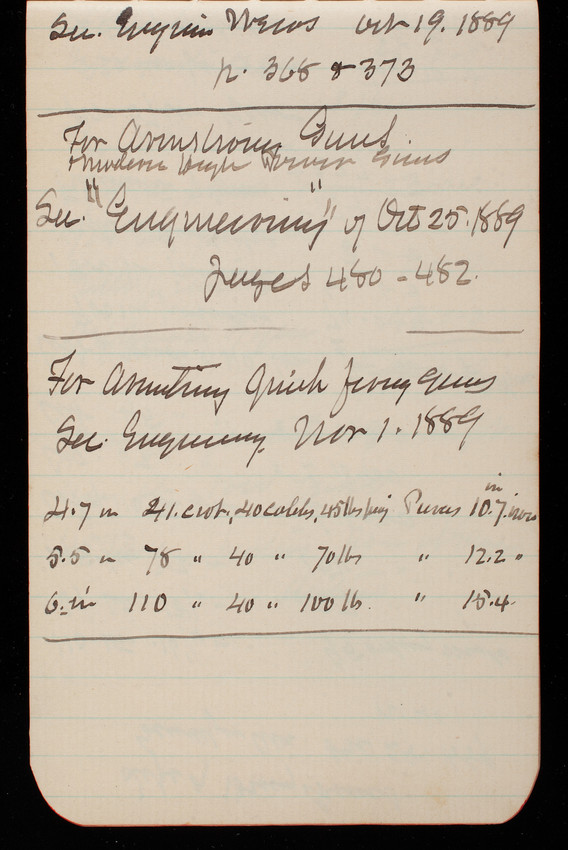 See. Engrin News Oct 19. 1889
p. 368 & 373
For Armstrong Guns.
& modern high Power Guns
See "Engineering" of Oct 25. 1889
pages 480 - 482.
For Armstrong Quick firing guns
See. Engineering, Nov 1. 1889
4.7 in 41. cwt., 40 calibs, 45 lbs proj Pierces 10.7 in iron
5.5 in 78 " 40 " 70 lbs " 12.2 "
6. in 110 " 40 " 100 lb. " 15.4.